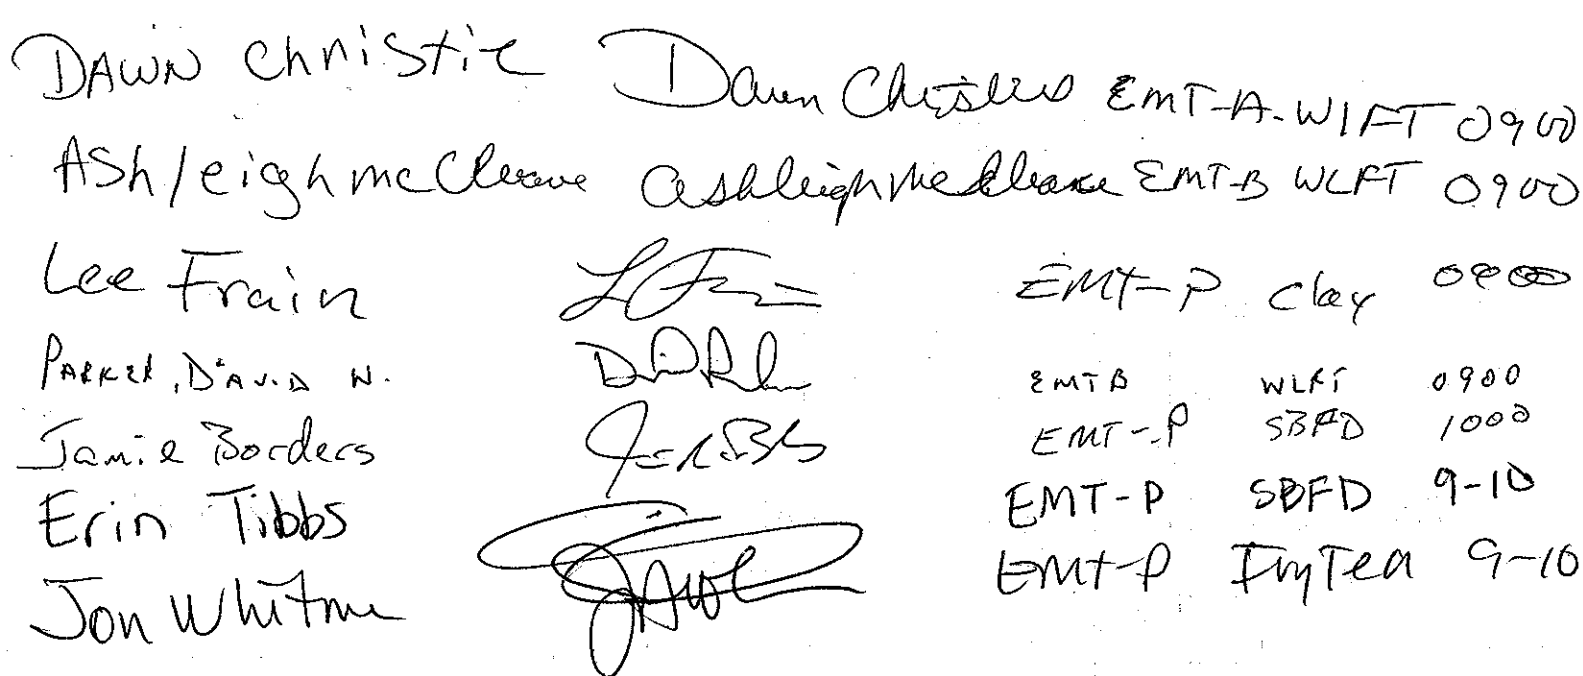 DAWN Christie Dawn Christie EMT-A-WLFT 0900
AShleigh mcCleave ashleigh McCleave EMT-B WLFT 0900
Lee Frain EMT-P Clay
PARKER, DAVID N. EMTB WLFT 0900
Jamie Borders EMT-P SBFD 1000
Erin Tibbs EMT-P SBFD 9-10
Jon Whitme EMT-P 9-10